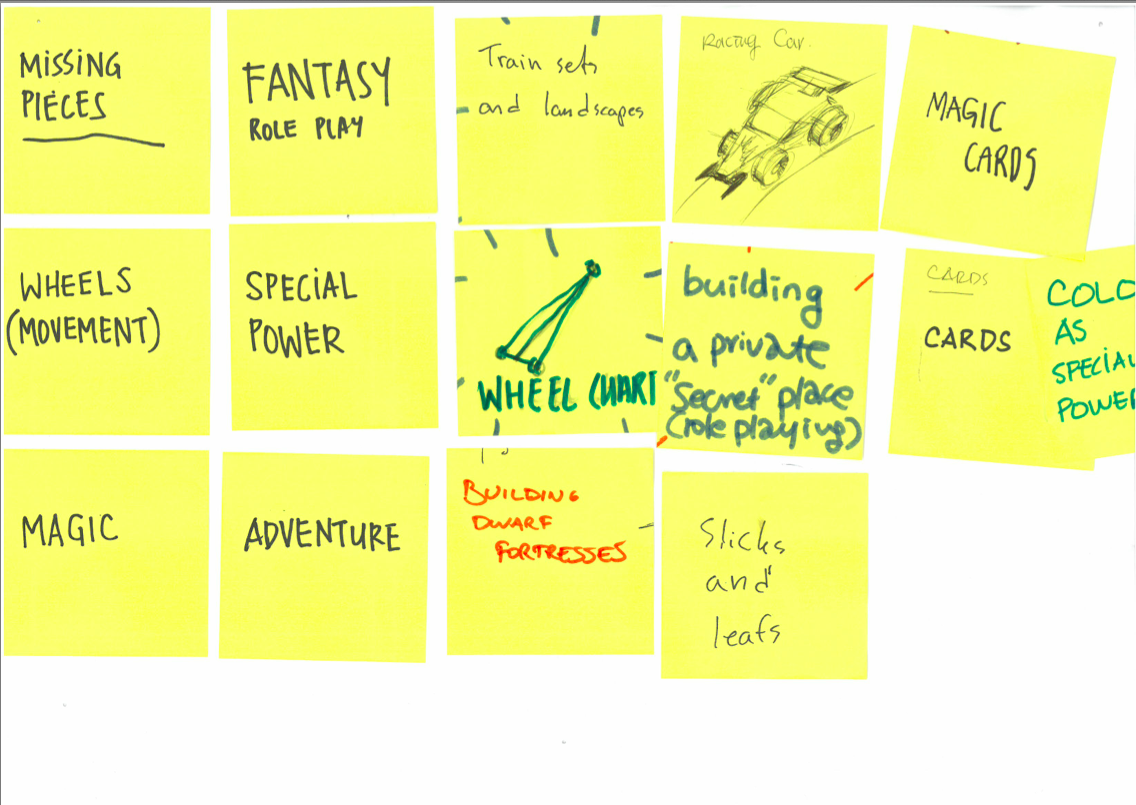 MISSING
PIECES
FANTASY
ROLE PLAY
Train sets
and landscapes
Racing Car.
MAGIC
CARDS
WHEELS
(MOVEMENT)
SPECIAL
POWER
WHEEL CHART
building
a private
"Secret" place
(role playing)
CARDS
CARDS
COLO
AS
SPECIAL
POWER
MAGIC
ADVENTURE
BUILDING
DWARF
FORTRESSES
Sticks
and
leafs